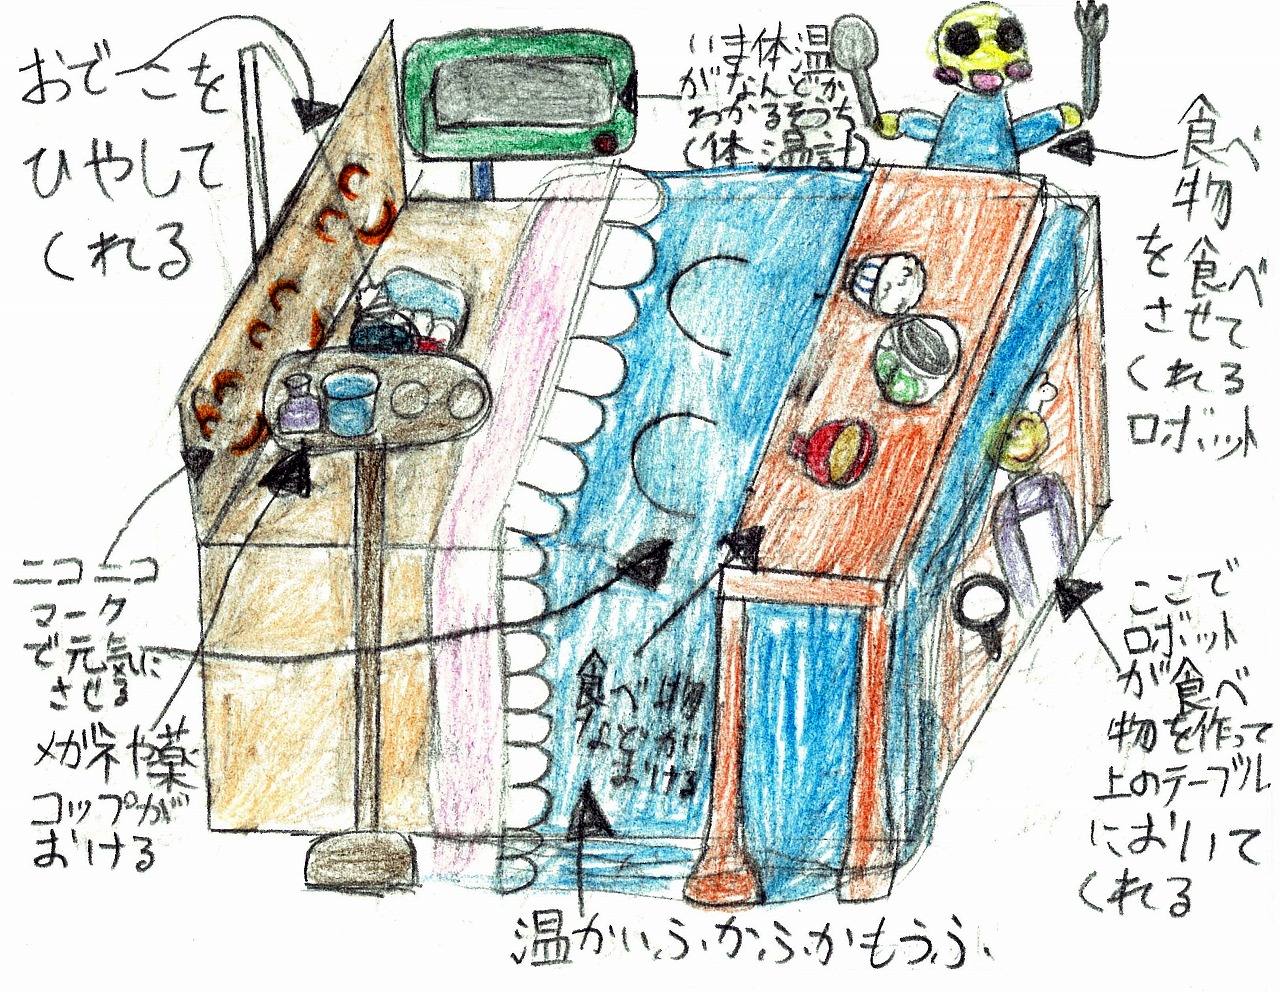 おでこを
ひやして
くれる
いま体温
がなんどか
わかるそうち
(体温計)
食べ
物
を食べ
させて
くれる
ロボット
ニコニコ
マーク
で元気に
させる
メガネや薬
コップが
おける
食べ物
などが
おける
ここで
ロボット
が食べ
物を作って
上のテーブル
において
くれる
温かいふかふかもうふ